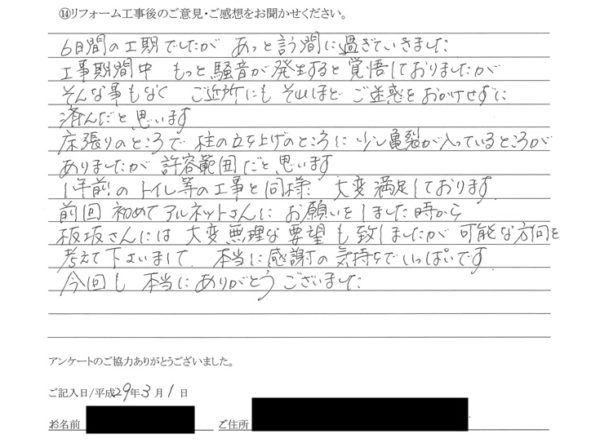 ⑭リフォーム工事後のご意見・ご感想をお聞かせください。
6日間の工期でしたが あっと言う間に過ぎていきました
工事期間中 もっと騒音が発生すると覚悟しておりましたが
そんな事もなく ご近所にも それほど ご迷惑をおかけせずに
済んだと思います
床張りのところで 柱の立ち上げのところに 少し亀裂が入っているところが
ありましたが 許容範囲だと思います
1年前のトイレ等の工事と同様 大変満足しております
前回 初めてアルネットさんに お願いをしました時から
板坂さんには 大変無理な要望も致しましたが 可能な方向を
考えて下さいまして 本当に感謝の気持ちでいっぱいです
今回も 本当にありがとうございました
アンケートのご協力ありがとうございました。
ご記入日/平成29年3月1日
お名前 ご住所